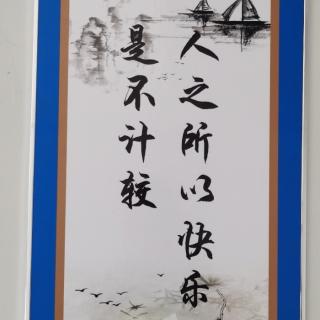 人之所以快乐
是不计较